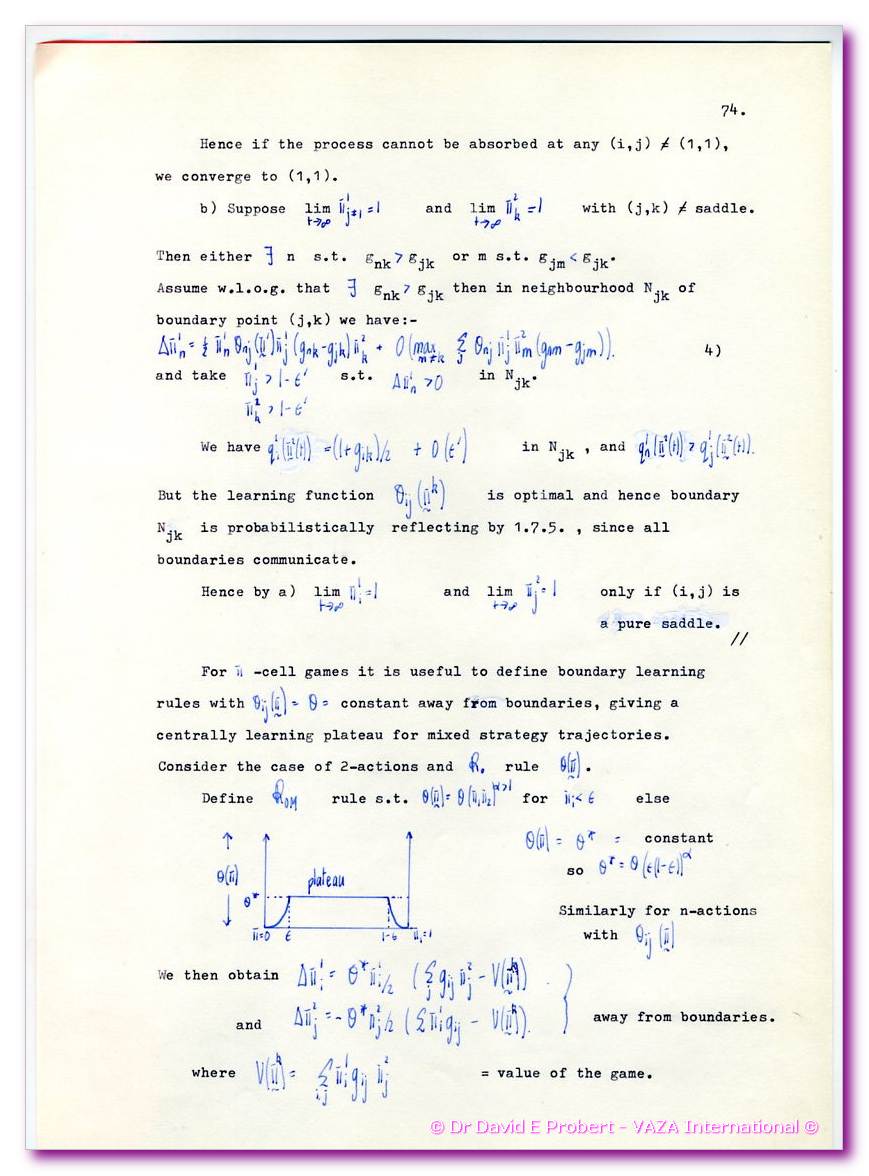 74.
Hence if the process cannot be absorbed at any (i,j) ≠ (1,1),
we converge to (1,1).
b) Suppose lim t→∞ π¹j = 1 and lim t→∞ π²k = 1 with (j,k) ≠ saddle.
Then either ∃ n s.t. gnk > gjk or m s.t. gjm < gjk.
Assume w.l.o.g. that ∃ gnk > gjk then in neighbourhood Njk of
boundary point (j,k) we have:-
Δπ¹n = ½ π¹n θnj(π¹) π¹j (gnk - gjk) π²k + O(max m≠k Σj θnj π¹j π²m (gnm - gjm)). 4)
and take π¹j > 1-ε' s.t. Δπ¹n > 0 in Njk.
π²k > 1-ε'
We have q¹i(π²(t)) = (1+gik)/2 + O(ε') in Njk , and q¹n(π²(t)) > q¹j(π²(t)).
But the learning function θij(πk) is optimal and hence boundary
Njk is probabilistically reflecting by 1.7.5. , since all
boundaries communicate.
Hence by a) lim t→∞ π¹i = 1 and lim t→∞ π²j = 1 only if (i,j) is
a pure saddle. //
For π -cell games it is useful to define boundary learning
rules with θij(π) = θ = constant away from boundaries, giving a
centrally learning plateau for mixed strategy trajectories.
Consider the case of 2-actions and R. rule θ(π).
Define ROM rule s.t. θ(π) = θ(π1π2)^α>1 for πi < ε else
θ(π) = θ* = constant
so θ* = θ(ε(1-ε))^α
θ(π)
plateau
θ*
π=0 ε 1-ε πi=1
Similarly for n-actions
with θij(π)
We then obtain Δπ¹i = θ*π¹i/2 (Σj gij π²j - V(πk))
and Δπ²j = -θ*π²j/2 (Σ π¹i gij - V(πk)). away from boundaries.
where V(πk) = Σi,j π¹i gij π²j = value of the game.
© Dr David E Probert - VAZA International ©